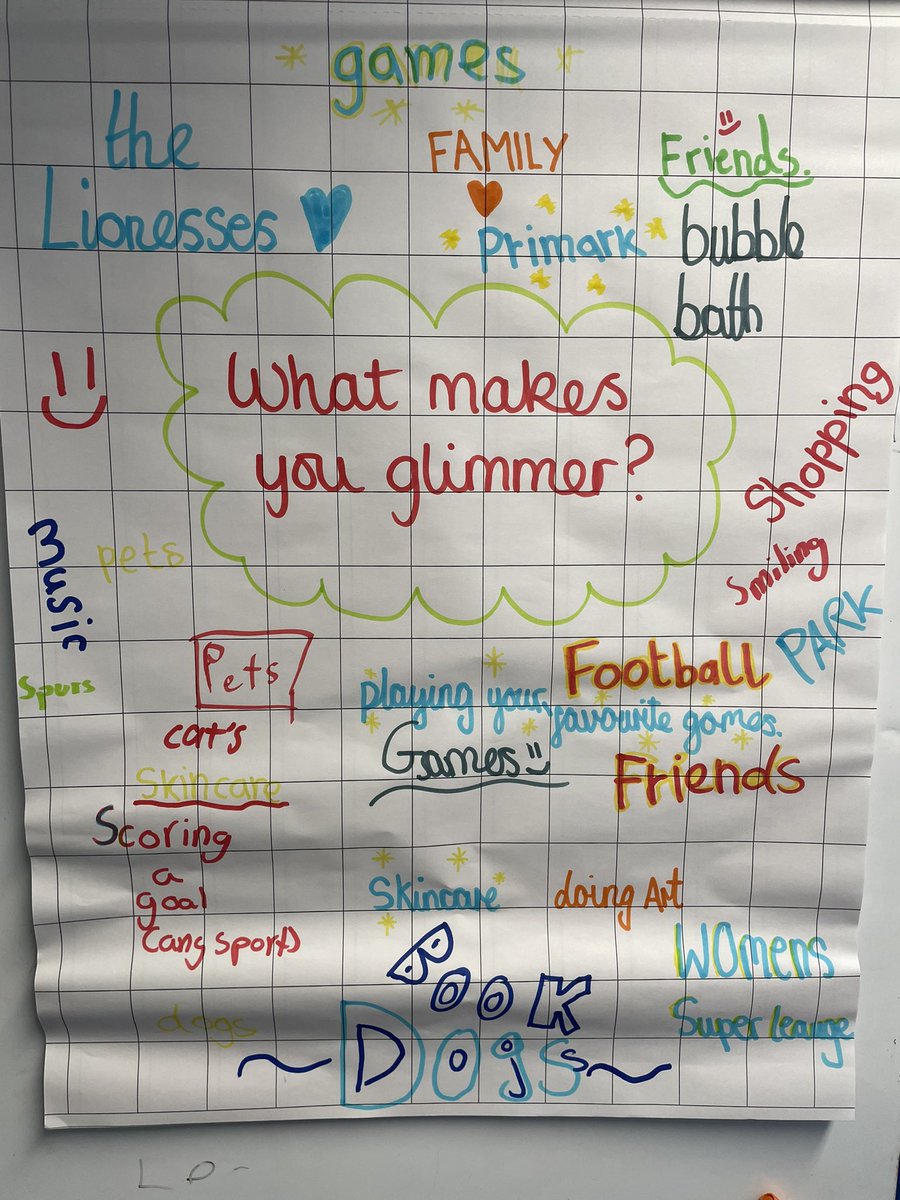 games
the
Lionesses
FAMILY
Friends.
Primark
bubble
bath
What makes
you glimmer?
Shopping
Smiling
PARK
music
pets
Spurs
Pets
cat's
Skincare
Scoring
a
goal
(any sport)
Football
playing your favourite games.
Games
Friends
Skincare
doing Art
BOOK
WOmens
Super leauge
dogs
Dogs
LP-